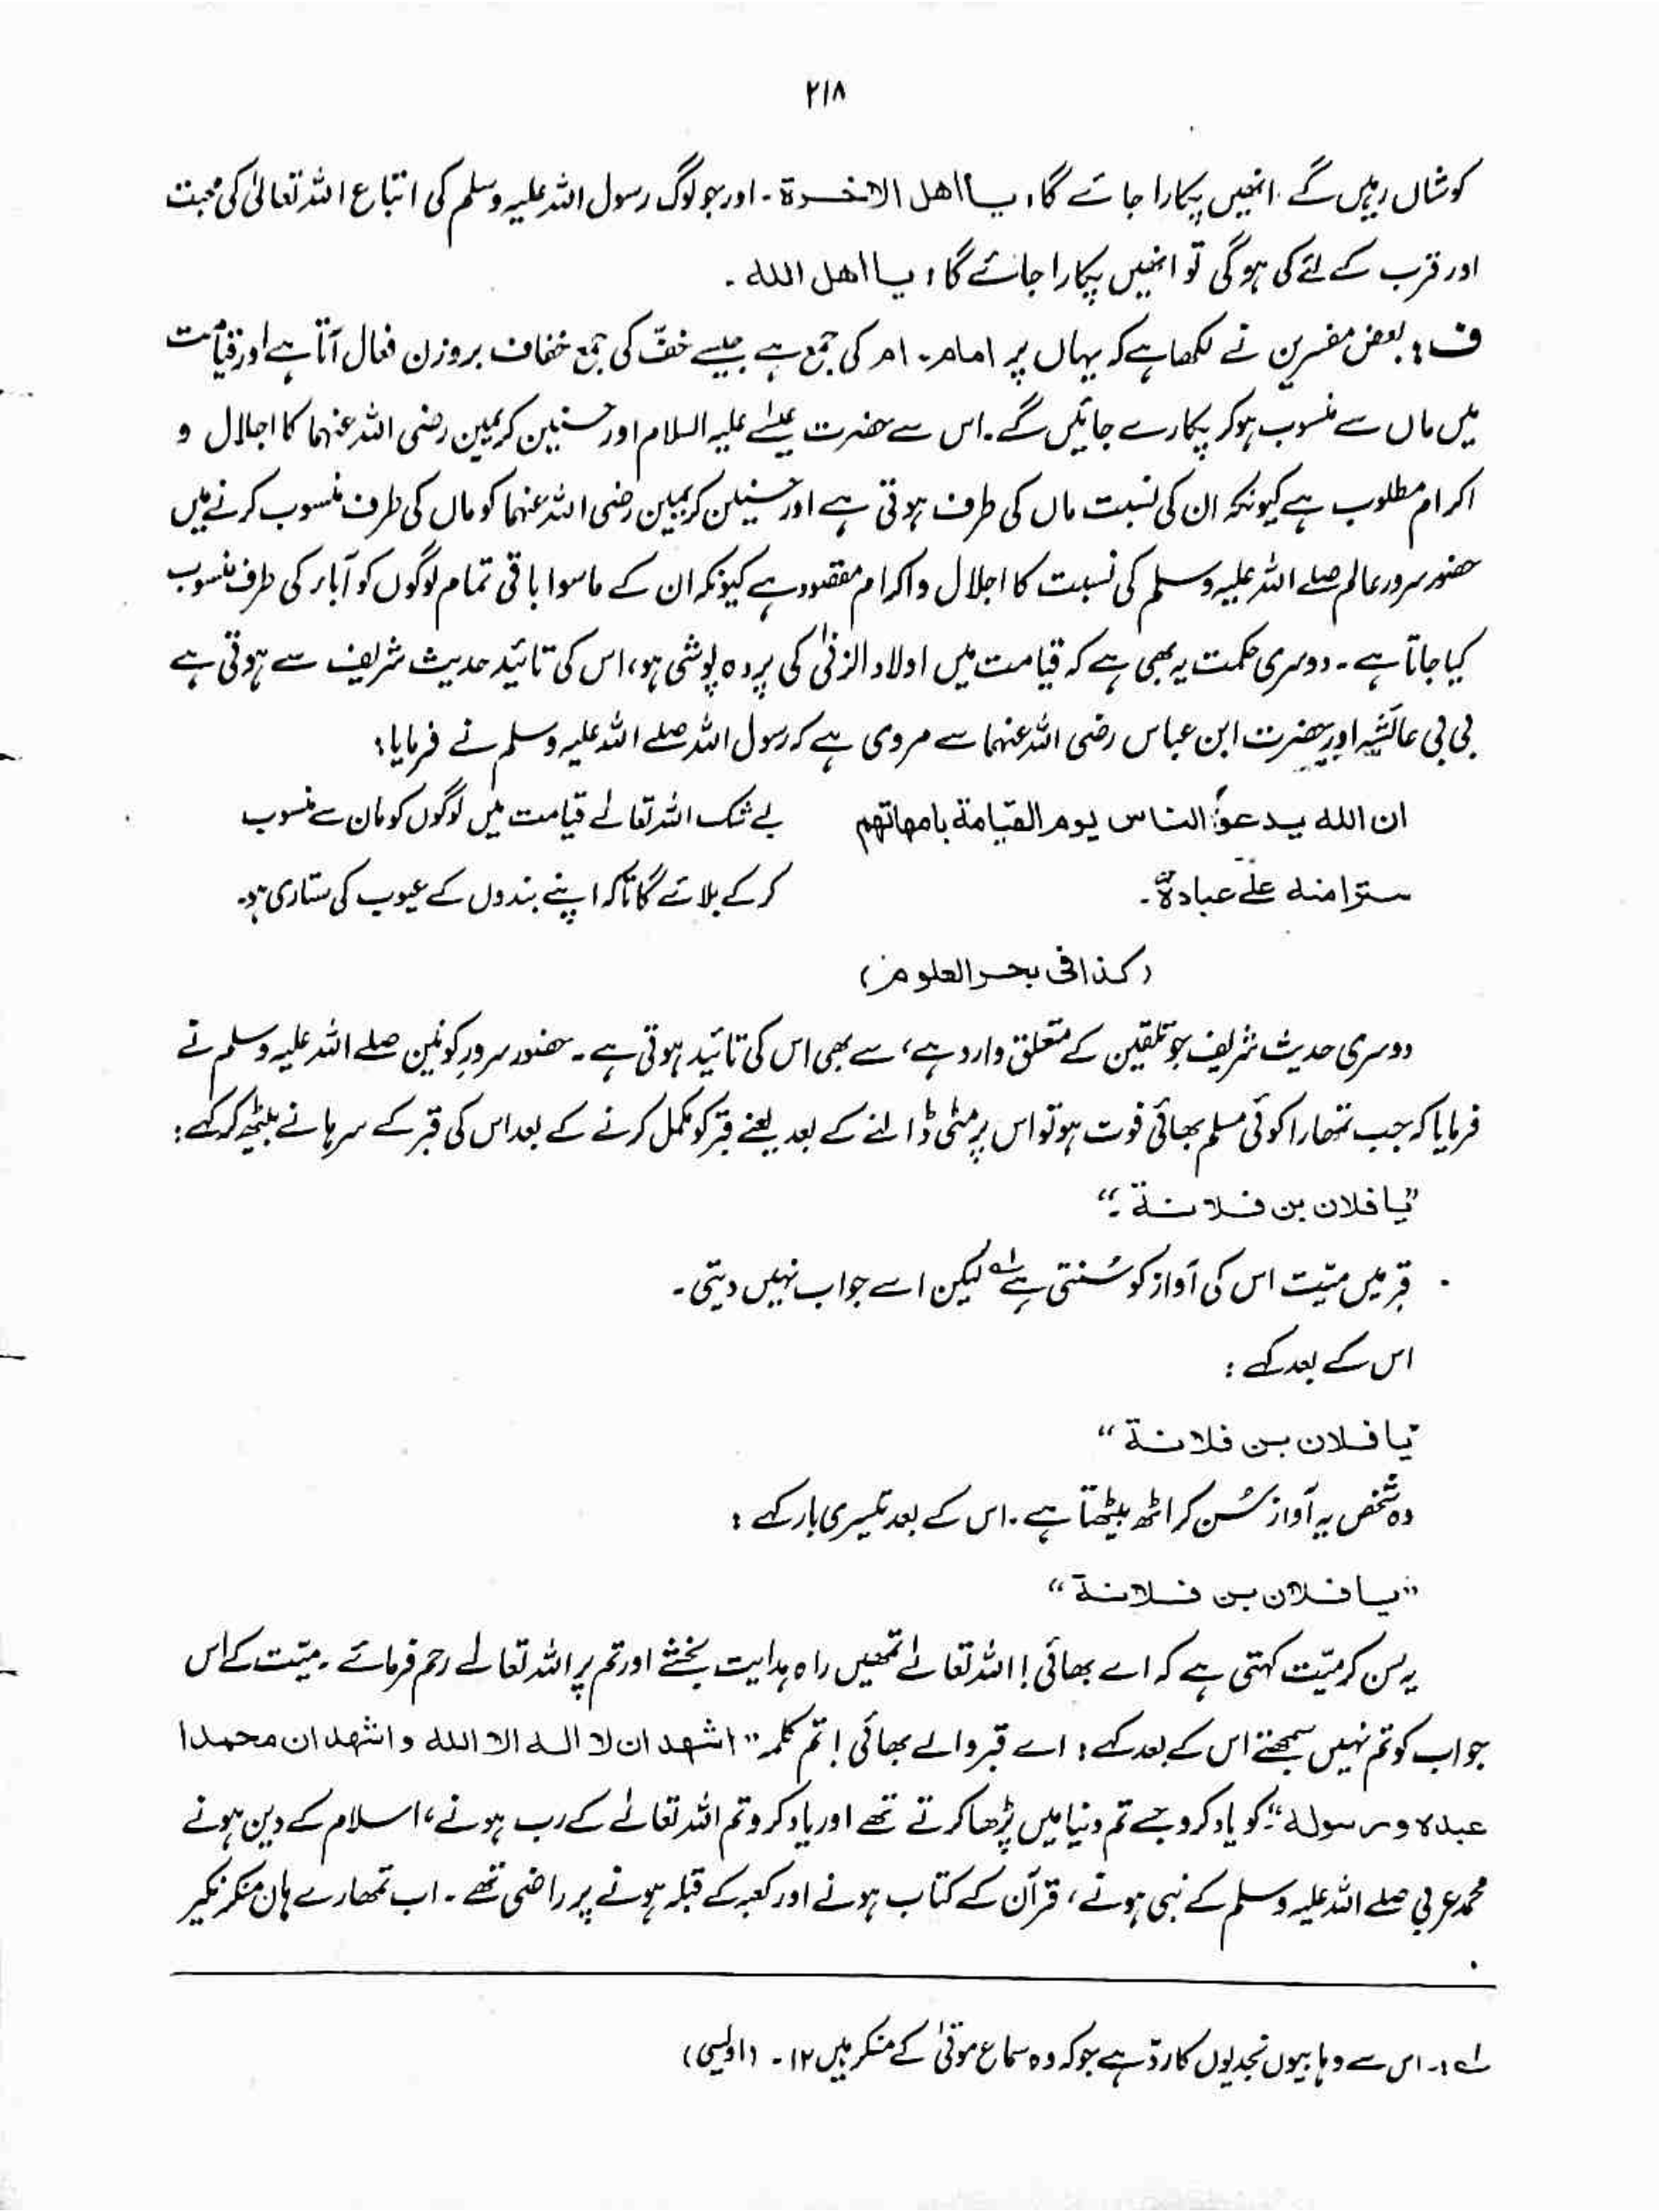 ۲۱۸
کوشاں رہیں گے۔ انھیں پکارا جائے گا، یا اھل الاخرۃ۔ اور جو لوگ رسول اللہ علیہ وسلم کی اتباع اللہ تعالیٰ کی محبت
اور قرب کے لئے کی ہوگی تو انھیں پکارا جائے گا؛ یا اھل اللہ۔
ف: بعض مفسرین نے لکھا ہے کہ یہاں پر امام۔ ام کی جمع ہے جیسے خفّ کی جمع خفاف بروزن فعال آتا ہے اور قیامت
میں ماں سے منسوب ہو کر پکارے جائیں گے۔ اس سے حضرت عیسٰے علیہ السلام اور حسنین کریمین رضی اللہ عنہما کا اجلال و
اکرام مطلوب ہے کیونکہ ان کی نسبت ماں کی طرف ہوتی ہے اور حسنین کریمین رضی اللہ عنہما کو ماں کی طرف منسوب کرنے میں
حضور سرور عالم صلے اللہ علیہ وسلم کی نسبت کا اجلال و اکرام مقصود ہے کیونکہ ان کے ماسوا باقی تمام لوگوں کو آباء کی طرف منسوب
کیا جاتا ہے۔ دوسری حکمت یہ بھی ہے کہ قیامت میں اولاد الزنیٰ کی پردہ پوشی ہو، اس کی تائید حدیث شریف سے ہوتی ہے
بی بی عائشہ اور حضرت ابن عباس رضی اللہ عنہما سے مروی ہے کہ رسول اللہ صلے اللہ علیہ وسلم نے فرمایا:
ان اللہ یدعوُا الناس یوم القیامۃ بامھاتھم بے شک اللہ تعالےٰ قیامت میں لوگوں کو مان سے منسوب
سترا منہ علےٰ عبادہٖ۔ کر کے بلائے گا تاکہ اپنے بندوں کے عیوب کی ستاری ہو۔
(کذا فی بحر العلوم)
دوسری حدیث شریف جو تلقین کے متعلق وارد ہے، سے بھی اس کی تائید ہوتی ہے۔ حضور سرورِ کونین صلے اللہ علیہ وسلم نے
فرمایا کہ جب تمھارا کوئی مسلم بھائی فوت ہو تو اس پر مٹی ڈالنے کے بعد یعنے قبر کو مکمل کرنے کے بعد اس کی قبر کے سرہانے بیٹھ کر کہے:
"یا فلان بن فلانۃ۔"
قبر میں میّت اس کی آواز کو سُنتی ہے؂۱ لیکن اسے جواب نہیں دیتی۔
اس کے بعد کہے:
"یا فلان بن فلانۃ"
وہ شخص یہ آواز سُن کر اٹھ بیٹھتا ہے۔ اس کے بعد تیسری بار کہے:
"یا فلان بن فلانۃ"
یہ سن کر میّت کہتی ہے کہ اے بھائی! اللہ تعالےٰ تمھیں راہ ہدایت بخشے اور تم پر اللہ تعالےٰ رحم فرمائے۔ میّت کے اس
جواب کو تم نہیں سمجھتے اس کے بعد کہے: اے قبر والے بھائی! تم کلمہ "اشھد ان لا الہ الا اللہ و اشھد ان محمدا
عبدہ و رسولہ" کو یاد کرو جسے تم دنیا میں پڑھا کرتے تھے اور یاد کرو تم اللہ تعالےٰ کے رب ہونے، اسلام کے دین ہونے
محمد عربی صلے اللہ علیہ وسلم کے نبی ہونے، قرآن کے کتاب ہونے اور کعبہ کے قبلہ ہونے پر راضی تھے۔ اب تمھارے ہاں منکر نکیر
؂۱:۔ اس سے وہابیوں نجدیوں کا ردّ ہے جو کہ وہ سماع موتٰی کے منکر ہیں ۱۲۔ (اویسی)